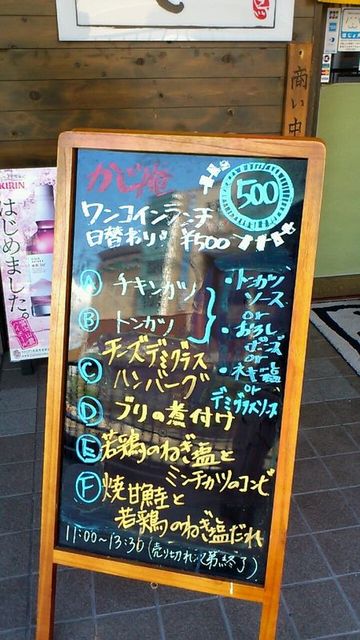 KIRIN
はじめました。
商い中
かじ庵
500
ワンコインランチ
日替わり ¥500
Ⓐ チキンカツ
Ⓑ トンカツ
・トンカツソース
or
・おろしポン酢
or
・ネギ塩
or
デミグラスソース
Ⓒ チーズデミグラス
ハンバーグ
Ⓓ ブリの煮付け
Ⓔ 若鶏のねぎ塩と
ミンチカツのコンビ
Ⓕ 焼甘鮭と
若鶏のねぎ塩だれ
11:00~13:30 (売り切れ次第終了)